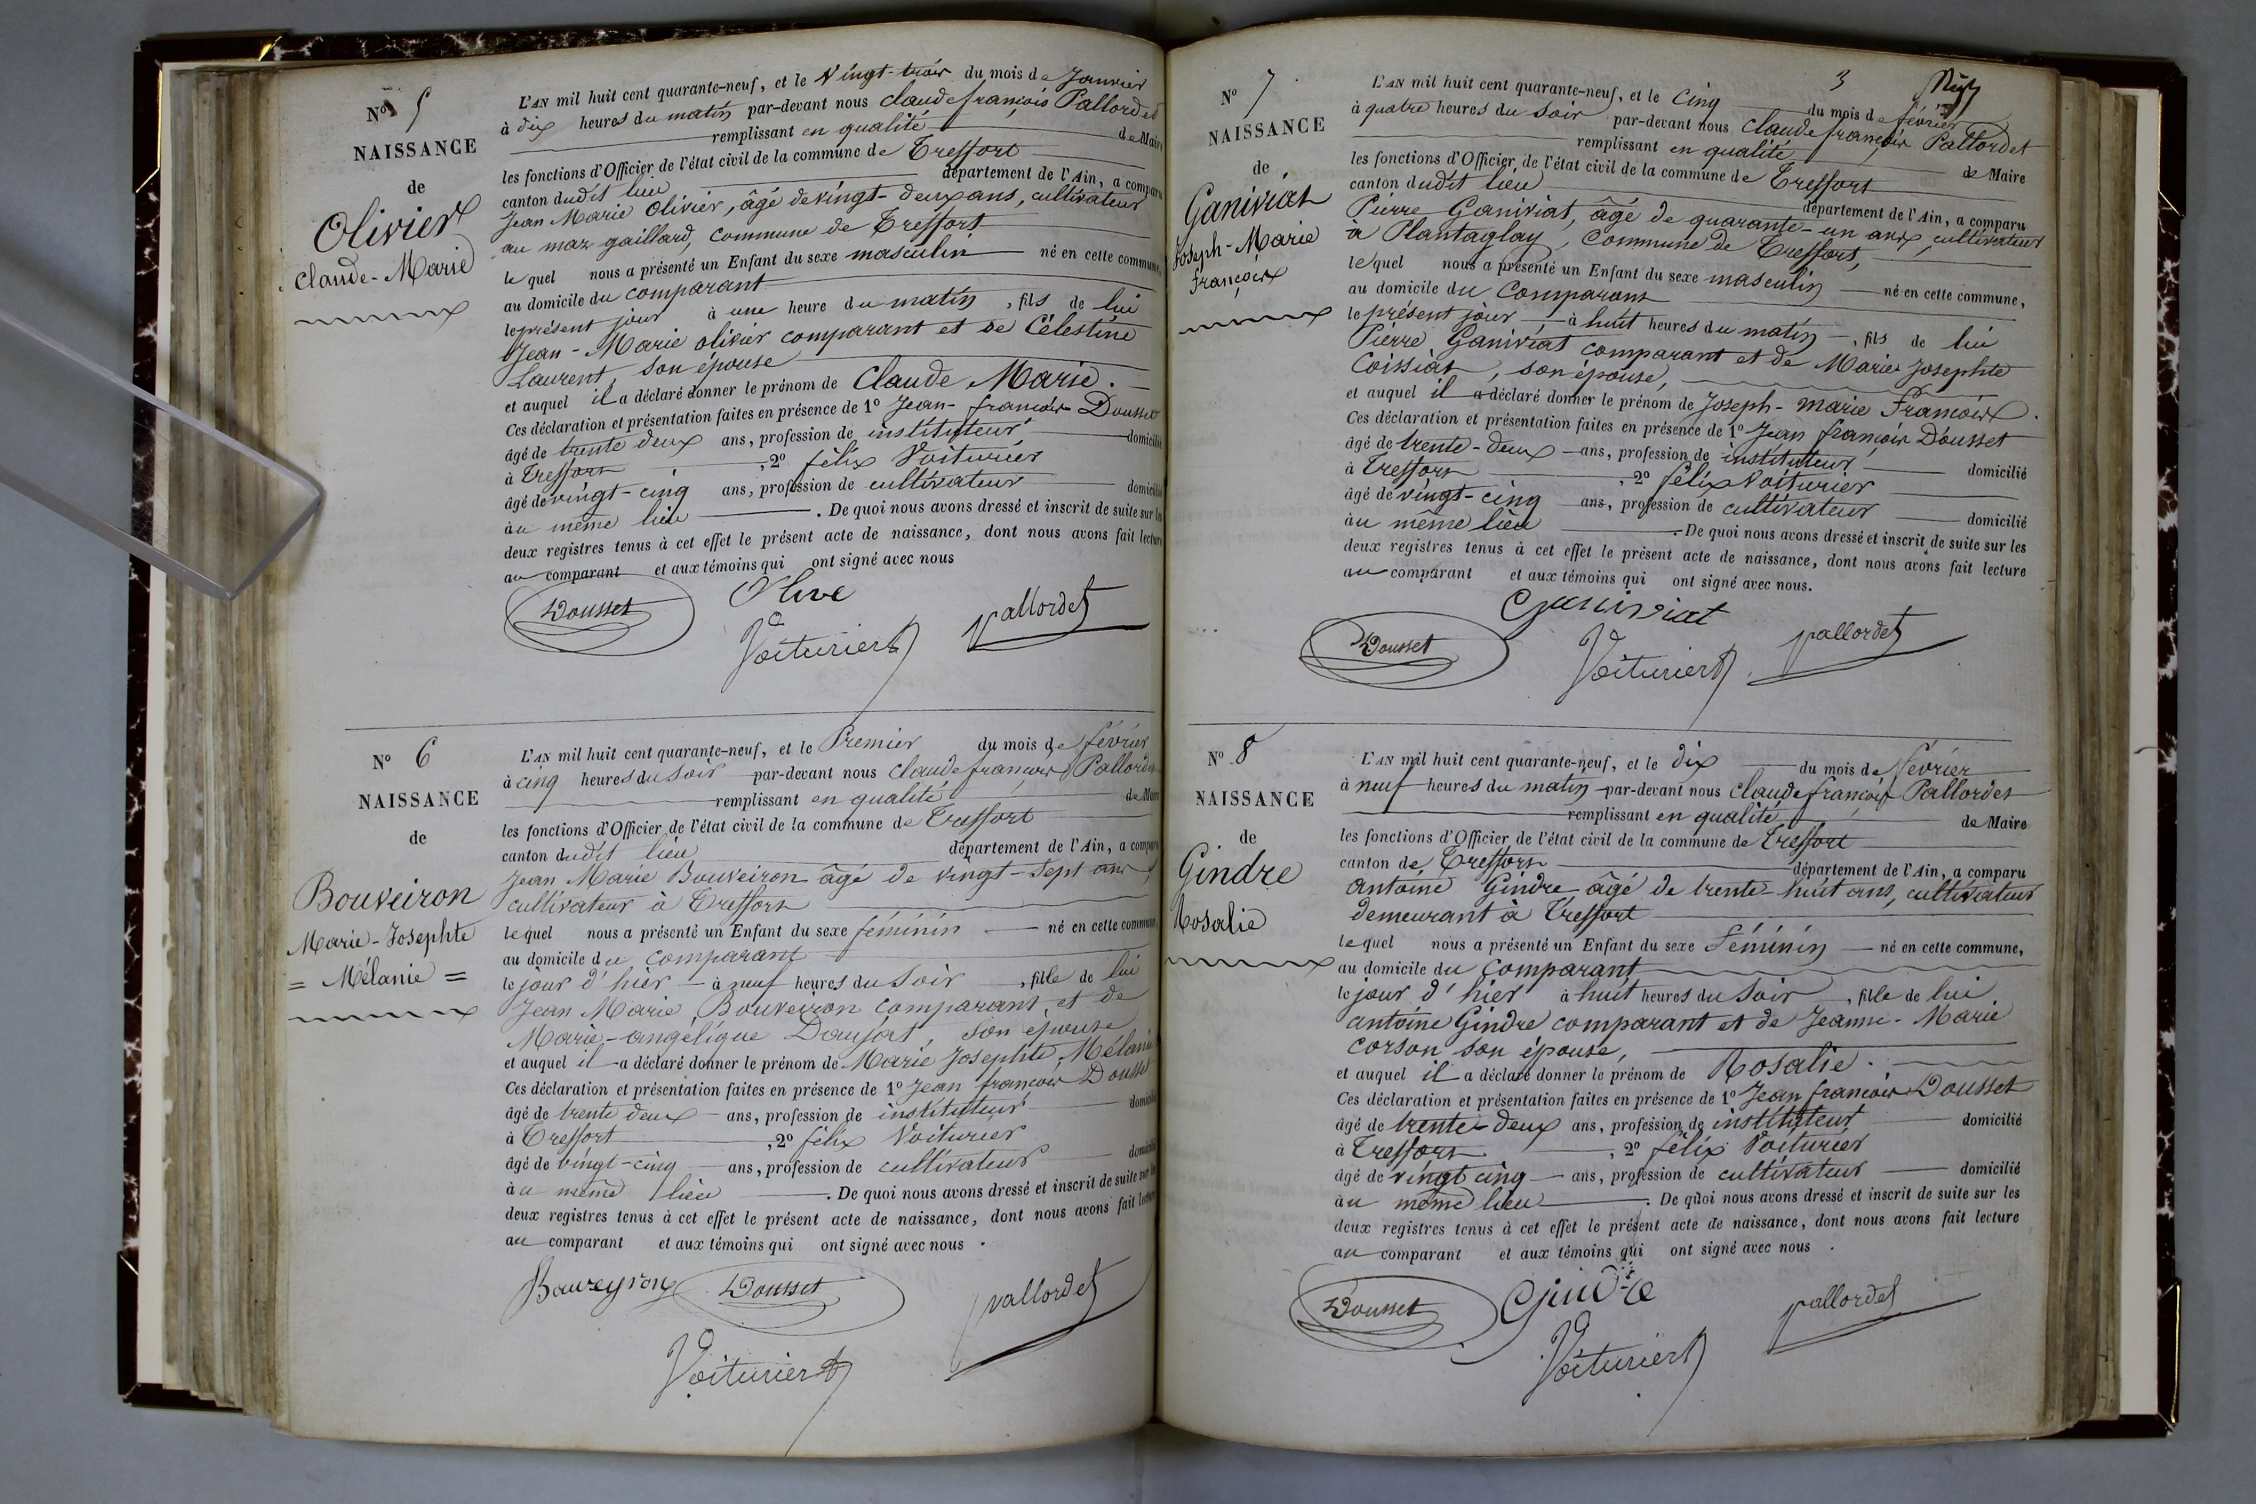 Nº 5
NAISSANCE
de
Olivier
Claude-Marie
L'AN mil huit cent quarante-neuf, et le Vingt-trois du mois de Janvier
à dix heures du matin par-devant nous Claude françois Pallordet
remplissant en qualité de Maire
les fonctions d'Officier de l'état civil de la commune de Treffort
canton dudit lieu département de l'Ain, a comparu
Jean Marie Olivier, âgé de vingt-deux ans, cultivateur
au maz gaillard, commune de Treffort
lequel nous a présenté un Enfant du sexe masculin né en cette commune,
au domicile du comparant
le présent jour à une heure du matin, fils de lui
Jean-Marie olivier comparant et de Célestine
Laurent, son épouse
et auquel il a déclaré donner le prénom de Claude Marie.
Ces déclaration et présentation faites en présence de 1º Jean-françois Dousset
âgé de trente deux ans, profession de instituteur domicilié
à Treffort, 2º félix Voiturier
âgé de vingt-cinq ans, profession de cultivateur domicilié
àu même lieu. De quoi nous avons dressé et inscrit de suite sur les
deux registres tenus à cet effet le présent acte de naissance, dont nous avons fait lecture
au comparant et aux témoins qui ont signé avec nous
Dousset Olive
Voiturier Pallordet
Nº 6
NAISSANCE
de
Bouveiron
Marie-Josephte
= Mélanie =
L'AN mil huit cent quarante-neuf, et le Premier du mois de février
à cinq heures du soir par-devant nous Claude françois Pallordet
remplissant en qualité de Maire
les fonctions d'Officier de l'état civil de la commune de Treffort
canton dudit lieu département de l'Ain, a comparu
Jean Marie Bouveiron âgé de vingt-sept ans,
cultivateur à Treffort
lequel nous a présenté un Enfant du sexe féminin né en cette commune,
au domicile du comparant
le jour d'hier à neuf heures du soir, fille de lui
Jean Marie Bouveiron comparant, et de
Marie-angélique son épouse
et auquel il a déclaré donner le prénom de Marie Josephte Mélanie
Ces déclaration et présentation faites en présence de 1º Jean françois Dousset
âgé de trente deux ans, profession de instituteur domicilié
à Treffort, 2º félix Voiturier
âgé de vingt-cinq ans, profession de cultivateur domicilié
àu même lieu. De quoi nous avons dressé et inscrit de suite sur les
deux registres tenus à cet effet le présent acte de naissance, dont nous avons fait lecture
au comparant et aux témoins qui ont signé avec nous.
Bouveyron Dousset Pallordet
Voiturier
3
Nº 7
NAISSANCE
de
Ganiviat
Joseph-Marie
françois
L'AN mil huit cent quarante-neuf, et le Cinq du mois de février
à quatre heures du soir par-devant nous Claude françois Pallordet
remplissant en qualité de Maire
les fonctions d'Officier de l'état civil de la commune de Treffort
canton dudit lieu département de l'Ain, a comparu
Pierre Ganiviat, âgé de quarante-un ans, cultivateur
à Plantaglay, Commune de Treffort,
lequel nous a présenté un Enfant du sexe masculin né en cette commune,
au domicile du Comparant
le présent jour à huit heures du matin, fils de lui
Pierre Ganiviat comparant et de Marie Josephte
Coissiat, son épouse,
et auquel il a déclaré donner le prénom de Joseph-Marie François.
Ces déclaration et présentation faites en présence de 1º Jean françois Dousset
âgé de trente-deux ans, profession de instituteur domicilié
à Treffort, 2º félix Voiturier
âgé de vingt-cinq ans, profession de cultivateur domicilié
àu même lieu. De quoi nous avons dressé et inscrit de suite sur les
deux registres tenus à cet effet le présent acte de naissance, dont nous avons fait lecture
au comparant et aux témoins qui ont signé avec nous.
Ganiviat
Dousset Voiturier Pallordet
Nº 8
NAISSANCE
de
Gindre
Rosalie
L'AN mil huit cent quarante-neuf, et le dix du mois de février
à neuf heures du matin par-devant nous Claude françois Pallordet
remplissant en qualité de Maire
les fonctions d'Officier de l'état civil de la commune de Treffort
canton de Treffort département de l'Ain, a comparu
antoine Gindre âgé de trente-huit ans, cultivateur
demeurant à Treffort
lequel nous a présenté un Enfant du sexe Féminin né en cette commune,
au domicile du Comparant
le jour d'hier à huit heures du soir, fille de lui
antoine Gindre comparant et de Jeanne-Marie
Corson son épouse,
et auquel il a déclaré donner le prénom de Rosalie.
Ces déclaration et présentation faites en présence de 1º Jean françois Dousset
âgé de trente-deux ans, profession de instituteur domicilié
à Treffort, 2º félix Voiturier
âgé de vingt cinq ans, profession de cultivateur domicilié
àu même lieu. De quoi nous avons dressé et inscrit de suite sur les
deux registres tenus à cet effet le présent acte de naissance, dont nous avons fait lecture
au comparant et aux témoins qui ont signé avec nous.
Dousset Gindre Pallordet
Voiturier